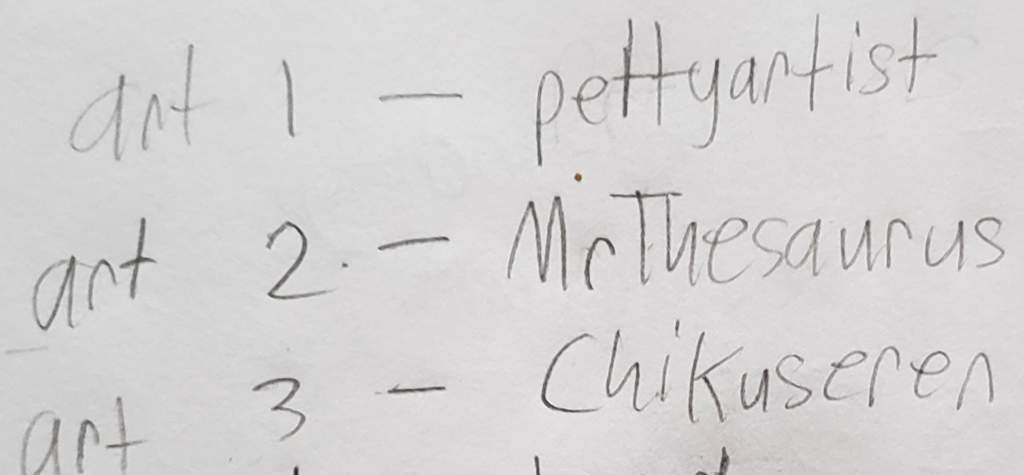 art 1 - pettyartist
art 2. - MrThesaurus
art 3 - Chikuseren